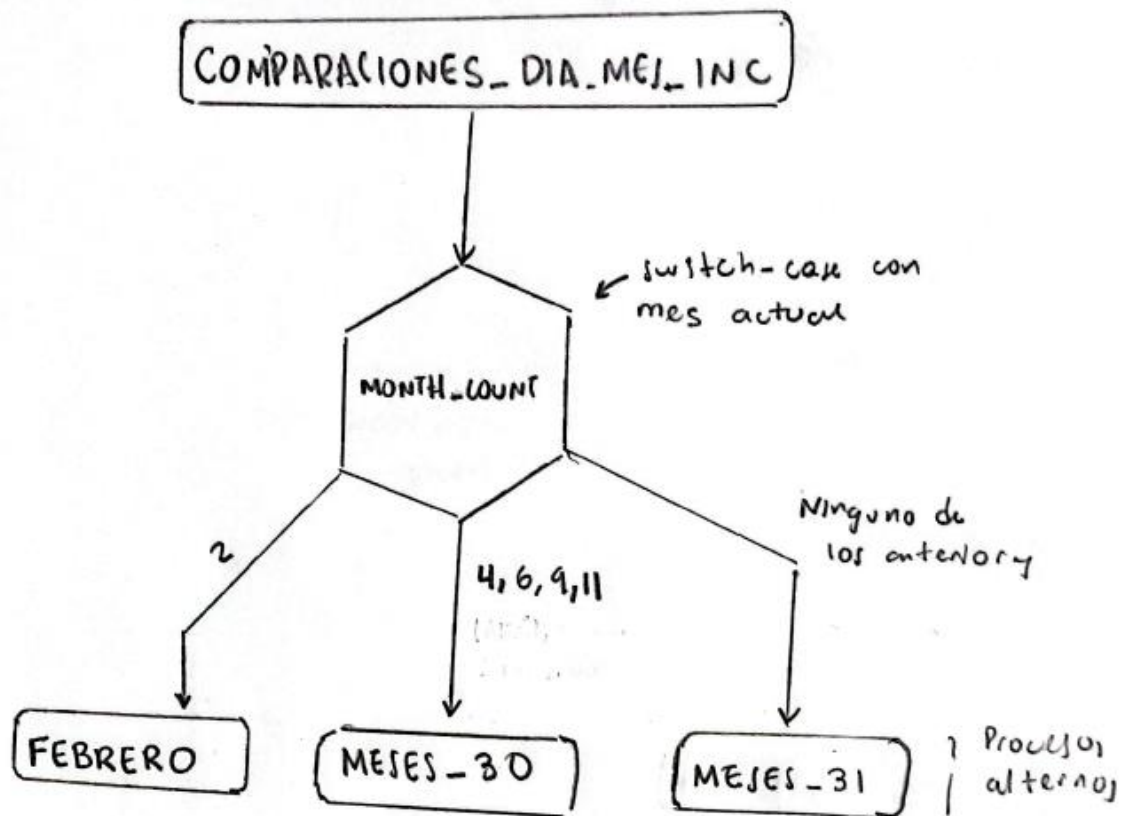 COMPARACIONES_DIA_MES_INC
switch-case con
mes actual
MONTH_COUNT
Ninguno de
los anteriores
2
4, 6, 9, 11
FEBRERO
MESES_30
MESES_31
Procesos
alternos